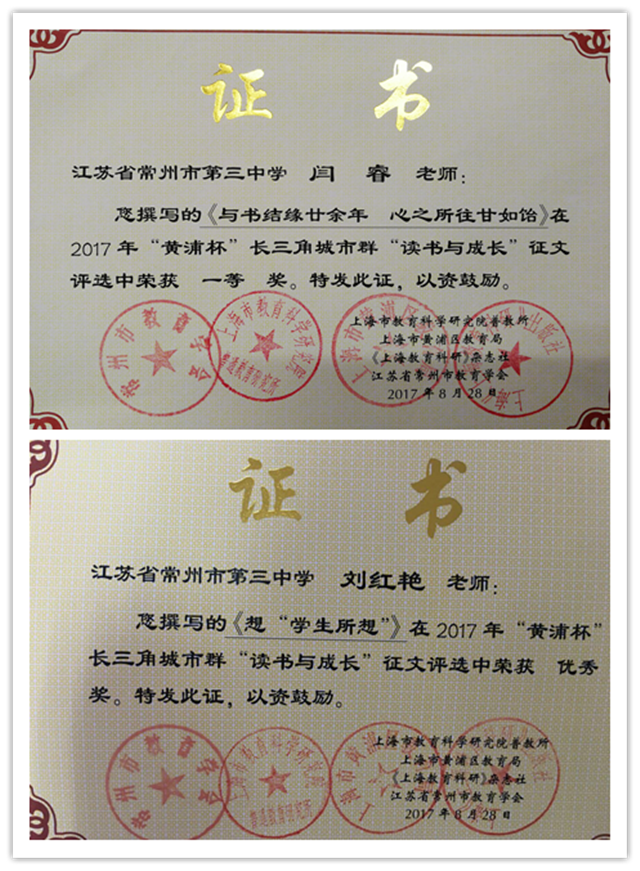 证 书
江苏省常州市第三中学 闫 睿 老师：
您撰写的《与书结缘廿余年 心之所往甘如饴》在
2017年“黄浦杯”长三角城市群“读书与成长”征文
评选中荣获 一等 奖。特发此证，以资鼓励。
上海市教育科学研究院普教所
上海市黄浦区教育局
《上海教育科研》杂志社
江苏省常州市教育学会
2017年8月28日
常州市教育学会
上海市教育科学研究院
普通教育研究所
证 书
江苏省常州市第三中学 刘红艳 老师：
您撰写的《想“学生所想”》在2017年“黄浦杯”
长三角城市群“读书与成长”征文评选中荣获 优秀
奖。特发此证，以资鼓励。
上海市教育科学研究院普教所
上海市黄浦区教育局
《上海教育科研》杂志社
江苏省常州市教育学会
2017年8月28日
常州市教育学会
上海市教育科学研究院
普通教育研究所